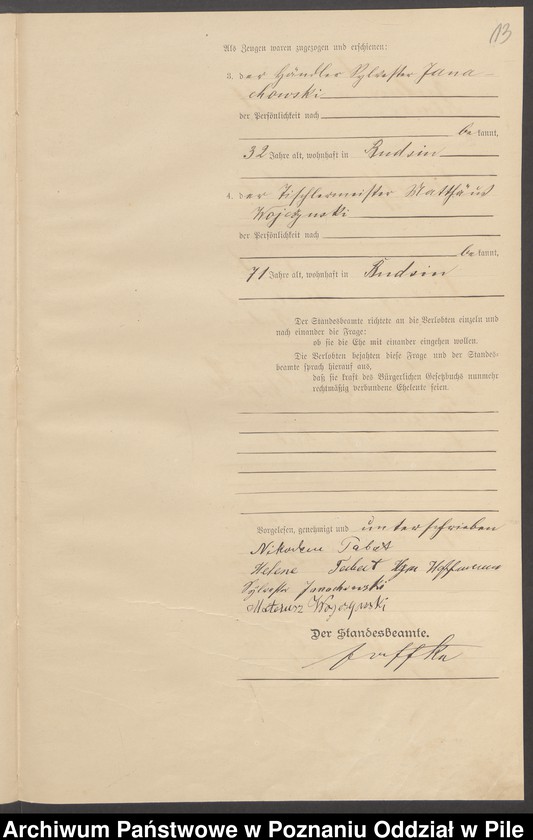 13
Als Zeugen waren zugezogen und erschienen:
3. der Händler Sylvester Jana-
chowski
der Persönlichkeit nach
be kannt,
32 Jahre alt, wohnhaft in Budsin
4. der Tischlermeister Matthäus
Wojczynski
der Persönlichkeit nach
be kannt,
71 Jahre alt, wohnhaft in Budsin
Der Standesbeamte richtete an die Verlobten einzeln und
nach einander die Frage:
ob sie die Ehe mit einander eingehen wollen.
Die Verlobten bejahten diese Frage und der Standes-
beamte sprach hierauf aus,
daß sie kraft des Bürgerlichen Gesetzbuchs nunmehr
rechtmäßig verbundene Eheleute seien.
Vorgelesen, genehmigt und unterschrieben
Nikodem Tabat
Helene Tabat Hoffmann
Sylvester Janochowski
Mateusz Wojczynski
Der Standesbeamte.
Archiwum Państwowe w Poznaniu Oddział w Pile